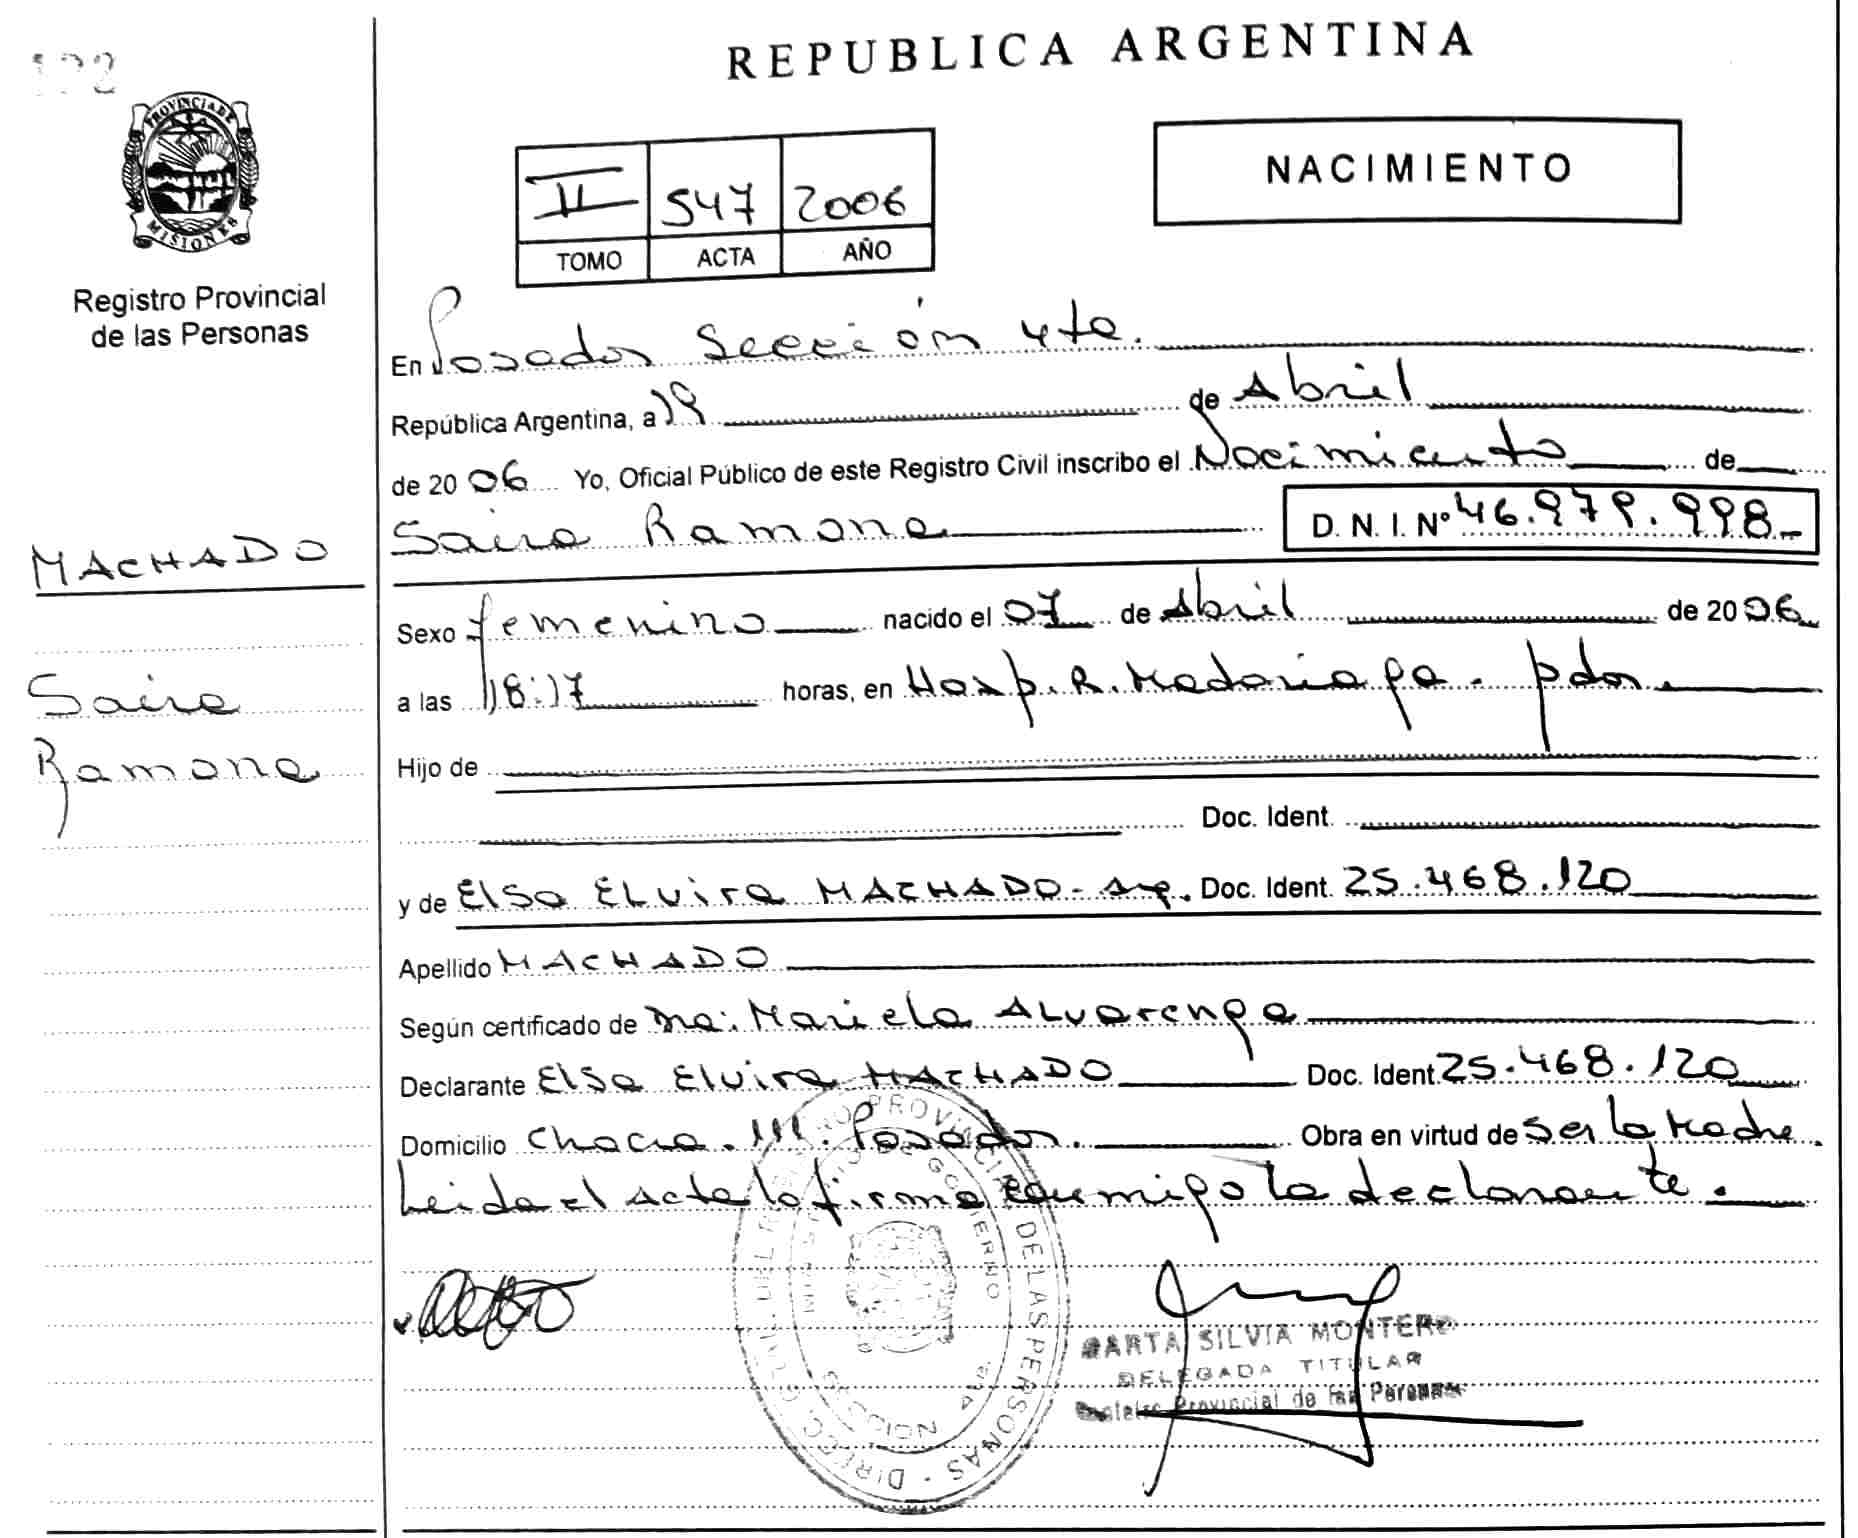 192
PROVINCIA DE
MISIONES
Registro Provincial
de las Personas
MACHADO
Saira
Ramona
REPUBLICA ARGENTINA
II 547 2006
TOMO ACTA AÑO
NACIMIENTO
En Posadas Sección 4ta.
República Argentina, a 19 de Abril
de 2006 Yo, Oficial Público de este Registro Civil inscribo el Nacimiento de
Saira Ramona D. N. I. Nº 46.979.998-
Sexo femenino nacido el 07 de Abril de 2006
a las 18:17 horas, en Hosp. R. Madariaga. pdas.
Hijo de
Doc. Ident.
y de Elsa Elvira MACHADO- arg. Doc. Ident. 25.468.120
Apellido MACHADO
Según certificado de Mariela Alvarenga
Declarante Elsa Elvira MACHADO Doc. Ident. 25.468.120
Domicilio Chacra. 111. Posadas. Obra en virtud de Ser la Madre.
Leida el Acta la firma conmigo la declarante.
MARTA SILVIA MONTERO
DELEGADA TITULAR
Registro Provincial de las Personas